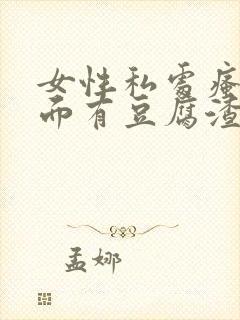 女性私处瘙
而有豆腐渣
孟娜